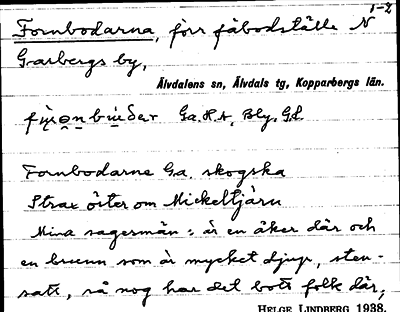 1-2
Fornbodarna, förr fäbodställe N
Garbergs by,
Älvdalens sn, Älvdals tg, Kopparbergs län.
Ga. H. A, Bly. G.L.
Fornbodarne Ga. skogska
Strax öster om Mickeltjärn
Mina sagesmän: är en åker där och
en brunn som är mycket djup, sten-
satt, så nog har det bott folk där,
HELGE LINDBERG 1938.